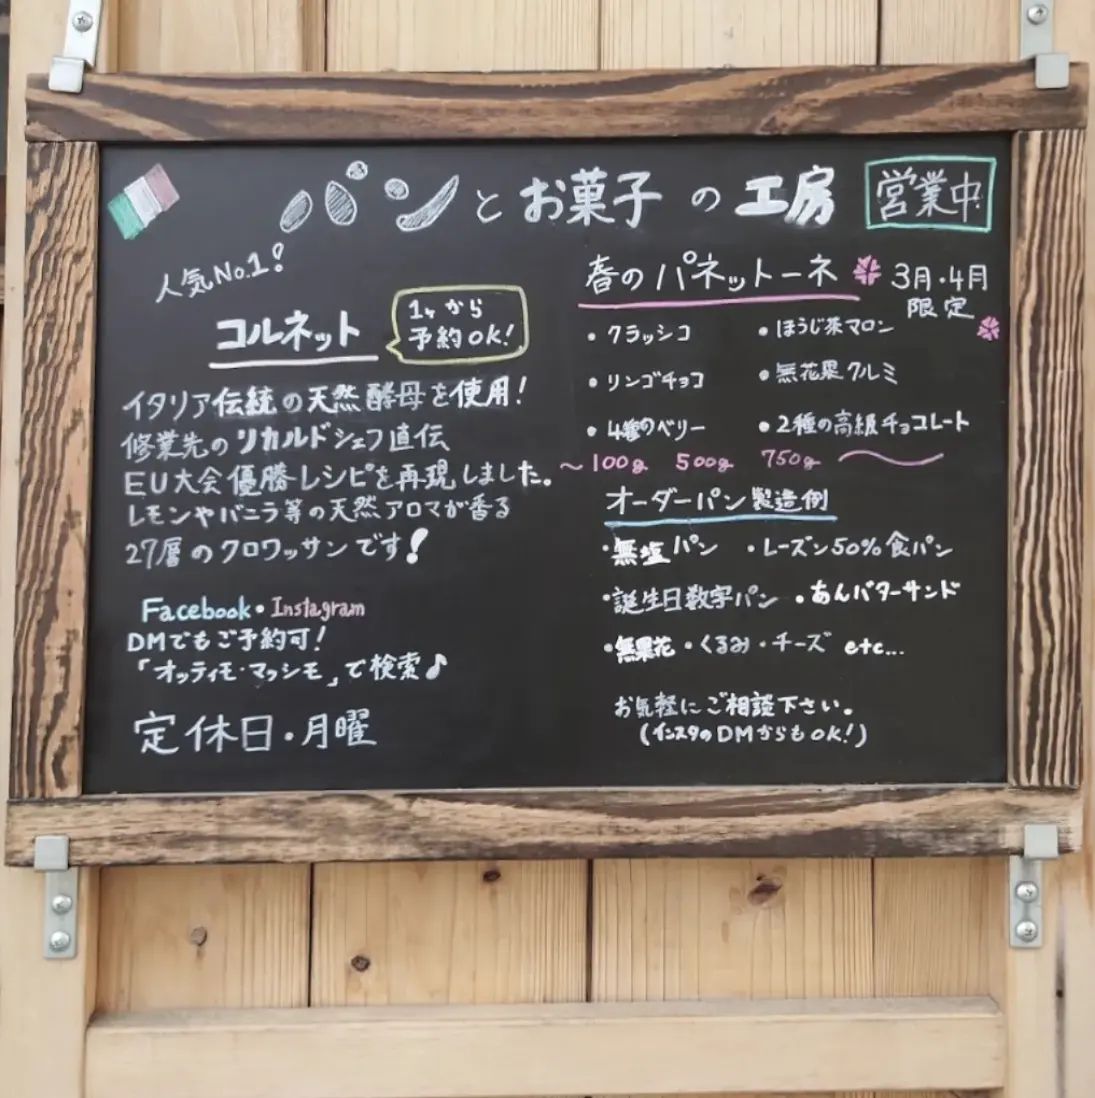 パンとお菓子の工房 営業中
人気No.1!
コルネット
1ヶから
予約OK!
イタリア伝統の天然酵母を使用!
修業先のリカルドシェフ直伝
EU大会優勝レシピを再現しました。
レモンやバニラ等の天然アロマが香る
27層のクロワッサンです!
Facebook・Instagram
DMでもご予約可!
「オッティモ・マッシモ」で検索♪
定休日・月曜
春のパネットーネ
3月・4月
限定
・クラッシコ ・ほうじ茶マロン
・リンゴチョコ ・無花果クルミ
・4種のベリー ・2種の高級チョコレート
~100g 500g 750g
オーダーパン製造例
・無塩パン ・レーズン50%食パン
・誕生日数字パン ・あんバターサンド
・無果花・くるみ・チーズ etc...
お気軽にご相談下さい。
(インスタのDMからもOK!)